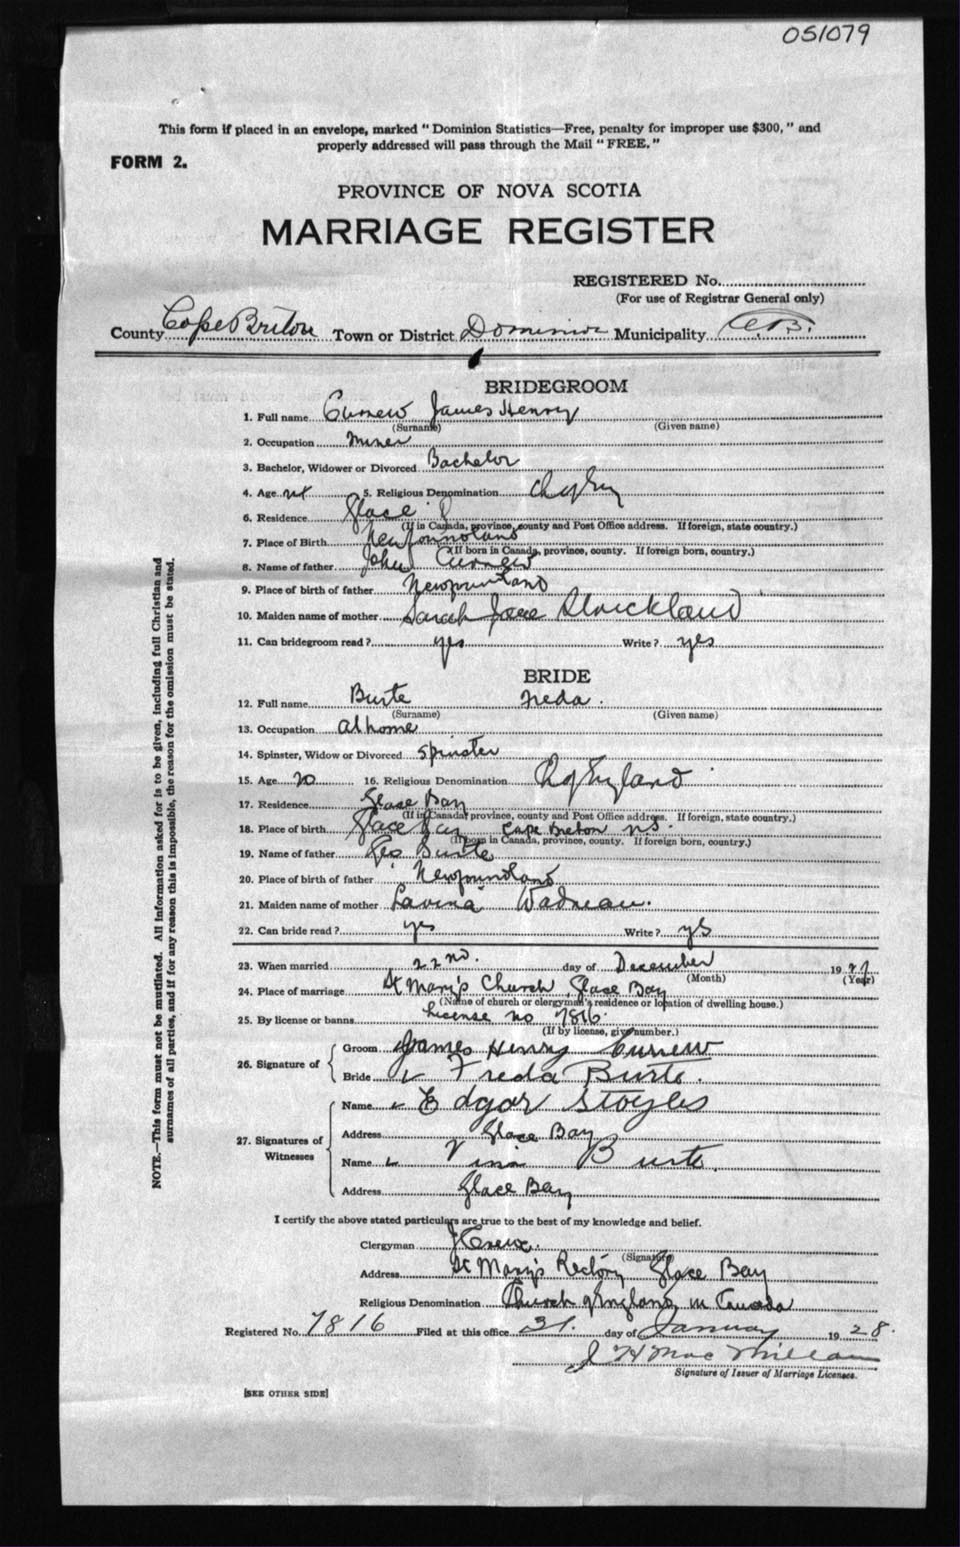 051079
This form if placed in an envelope, marked "Dominion Statistics—Free, penalty for improper use $300," and
properly addressed will pass through the Mail "FREE."
FORM 2.
PROVINCE OF NOVA SCOTIA
MARRIAGE REGISTER
REGISTERED No.
(For use of Registrar General only)
County Cape Briton Town or District Dominion Municipality C.B.
BRIDEGROOM
1. Full name Curnew James Henry
(Surname) (Given name)
2. Occupation Miner
3. Bachelor, Widower or Divorced Bachelor
4. Age 5. Religious Denomination Ch of Eng
6. Residence Glace
(If in Canada, province, county and Post Office address. If foreign, state country.)
7. Place of Birth Newfounnland
(If born in Canada, province, county. If foreign born, country.)
8. Name of father John Curnew
9. Place of birth of father Newfoundland
10. Maiden name of mother Sarah Jane Strickland
11. Can bridegroom read? yes Write? yes
BRIDE
12. Full name Burte Freda.
(Surname) (Given name)
13. Occupation at home
14. Spinster, Widow or Divorced spinster
15. Age 20 16. Religious Denomination Ch of England
17. Residence Glase Bay
(If in Canada, province, county and Post Office address. If foreign, state country.)
18. Place of birth Glace Bay Cape Breton N.S.
(If born in Canada, province, county. If foreign born, country.)
19. Name of father Geo Burte
20. Place of birth of father Newfoundland
21. Maiden name of mother Lavina Wadman.
22. Can bride read? yes Write? yes
23. When married 22nd. day of December 1927
(Month) (Year)
24. Place of marriage St Mary's Church Glase Bay
(Name of church or clergyman's residence or location of dwelling house.)
25. By license or banns License no 7816.
(If by license, give number.)
26. Signature of { Groom James Henry Curnew
Bride Freda Burte.
27. Signatures of Witnesses { Name Edgar Stoyles
Address Glace Bay
Name Vina Burte.
Address Glace Bay
I certify the above stated particulars are true to the best of my knowledge and belief.
Clergyman
(Signature)
Address St Mary's Rectory Glace Bay
Religious Denomination Church of England in Canada
Registered No. 7816 Filed at this office 31. day of January 1928.
J H MacMillan
Signature of Issuer of Marriage Licenses.
[SEE OTHER SIDE]
NOTE.—This form must not be mutilated. All information asked for is to be given, including full Christian and
surnames of all parties, and if for any reason this is impossible, the reason for the omission must be stated.